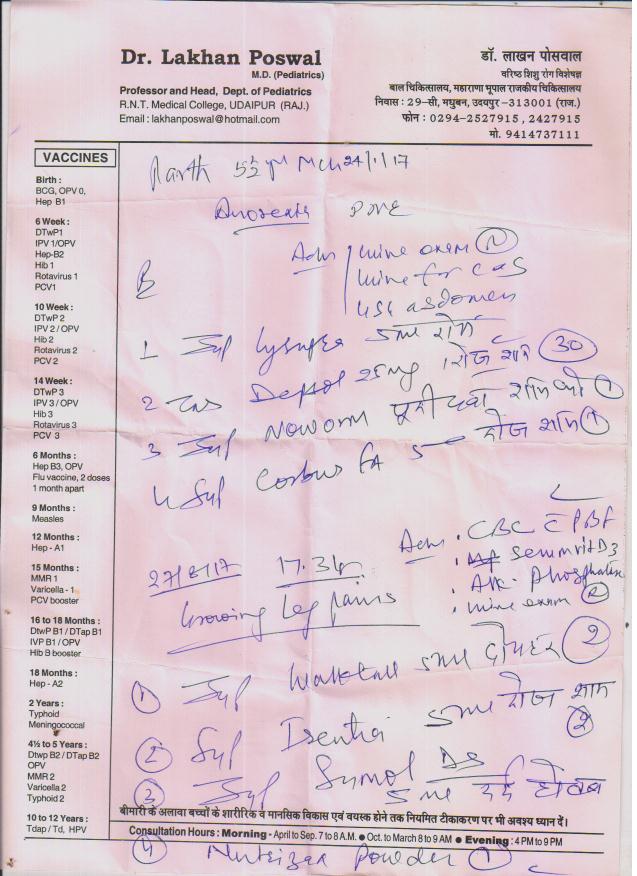 Dr. Lakhan Poswal
M.D. (Pediatrics)
Professor and Head, Dept. of Pediatrics
R.N.T. Medical College, UDAIPUR (RAJ.)
Email : lakhanposwal@hotmail.com
डॉ. लाखन पोसवाल
वरिष्ठ शिशु रोग विशेषज्ञ
बाल चिकित्सालय, महाराणा भूपाल राजकीय चिकित्सालय
निवास : 29-सी, मधुबन, उदयपुर -313001 (राज.)
फोन : 0294-2527915, 2427915
मो. 9414737111
VACCINES
Birth :
BCG, OPV 0,
Hep B1
6 Week :
DTwP1
IPV 1/OPV
Hep-B2
Hib 1
Rotavirus 1
PCV1
10 Week :
DTwP 2
IPV 2 / OPV
Hib 2
Rotavirus 2
PCV 2
14 Week :
DTwP 3
IPV 3 / OPV
Hib 3
Rotavirus 3
PCV 3
6 Months :
Hep B3, OPV
Flu vaccine, 2 doses
1 month apart
9 Months :
Measles
12 Months :
Hep - A1
15 Months :
MMR 1
Varicella - 1
PCV booster
16 to 18 Months :
DtwP B1 / DTap B1
IVP B1 / OPV
Hib B booster
18 Months :
Hep - A2
2 Years :
Typhoid
Meningococcal
4½ to 5 Years :
Dtwp B2 / DTap B2
OPV
MMR 2
Varicella 2
Typhoid 2
10 to 12 Years :
Tdap / Td, HPV
Parth 5½ yr Mch 24/1/17
PNE
Adv urine exam (N)
urine for c & S
USG abdomen
1 Syp 5ml रोज
2 Tab 25mg रोज शाम (30)
3 Syp Noworm पूरी दवा शाम को (1)
4 Syp FA 5 रोज शाम (1)
Adv . CBC c PBF
. Serum vit D3
. Alk. Phosphatase
. urine exam (R)
27/8/17 17.34
Growing leg pains
(1) Syp Walktall 5ml दोपहर (2)
(2) Syp 5ml रोज शाम (2)
(3) Syp Sumol DS 5ml दर्द होने पर
बीमारी के अलावा बच्चों के शारीरिक व मानसिक विकास एवं वयस्क होने तक नियमित टीकाकरण पर भी अवश्य ध्यान दें।
Consultation Hours : Morning - April to Sep. 7 to 8 A.M. ● Oct. to March 8 to 9 AM ● Evening : 4 PM to 9 PM
(4) Powder (1)